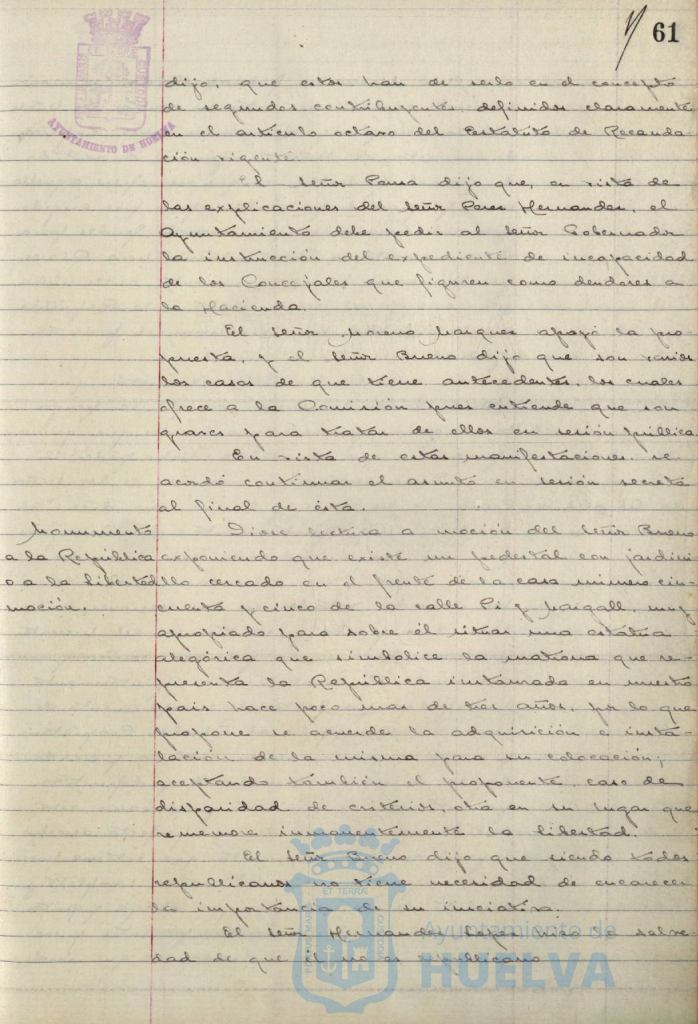 61
AYUNTAMIENTO DE HUELVA
dijo, que estos han de serlo en el concepto
de segundos contribuyentes, definidos claramente
en el artículo octavo del Estatuto de Recauda-
ción vigente.
El Señor Ponsa dijo que, en vista de
las explicaciones del Señor Peres Hernandez, el
Ayuntamiento debe pedir al Señor Gobernador
la instrucción del expediente de incapacidad
de los Concejales que figuren como deudores a
la Hacienda.
El Señor Moreno Marquez apoyó la pro-
puesta, y el Señor Bueno dijo que son varios
los casos de que tiene antecedentes, los cuales
ofrece a la Comisión pues entiende que son
graves para tratar de ellos en sesión pública
En vista de estas manifestaciones, se
acordó continuar el asunto en sesión secreta
al final de ésta.
Monumento
a la República
o a la libertad
moción.
Diose lectura a moción del Señor Bueno
exponiendo que existe un pedestal con jardini-
llo cercado en el frente de la casa número cin-
cuenta y cinco de la calle Pi y Margall, muy
apropiado para sobre él situar una estatua
alegórica que simbolice la matrona que re-
presenta la República instaurada en nuestro
país hace poco mas de tres años, por lo que
propone se acuerde la adquisición e insta-
lación de la misma para su colocación;
aceptando también el proponente, caso de
disparidad de criterios, otra en su lugar que
rememore inmanentemente la libertad.
El Señor Bueno dijo que siendo todos
republicanos no tiene necesidad de encarecer
la importancia de su iniciativa.
El Señor Hernandez hizo la salve-
dad de que él no es republicano
Ayuntamiento de
HUELVA